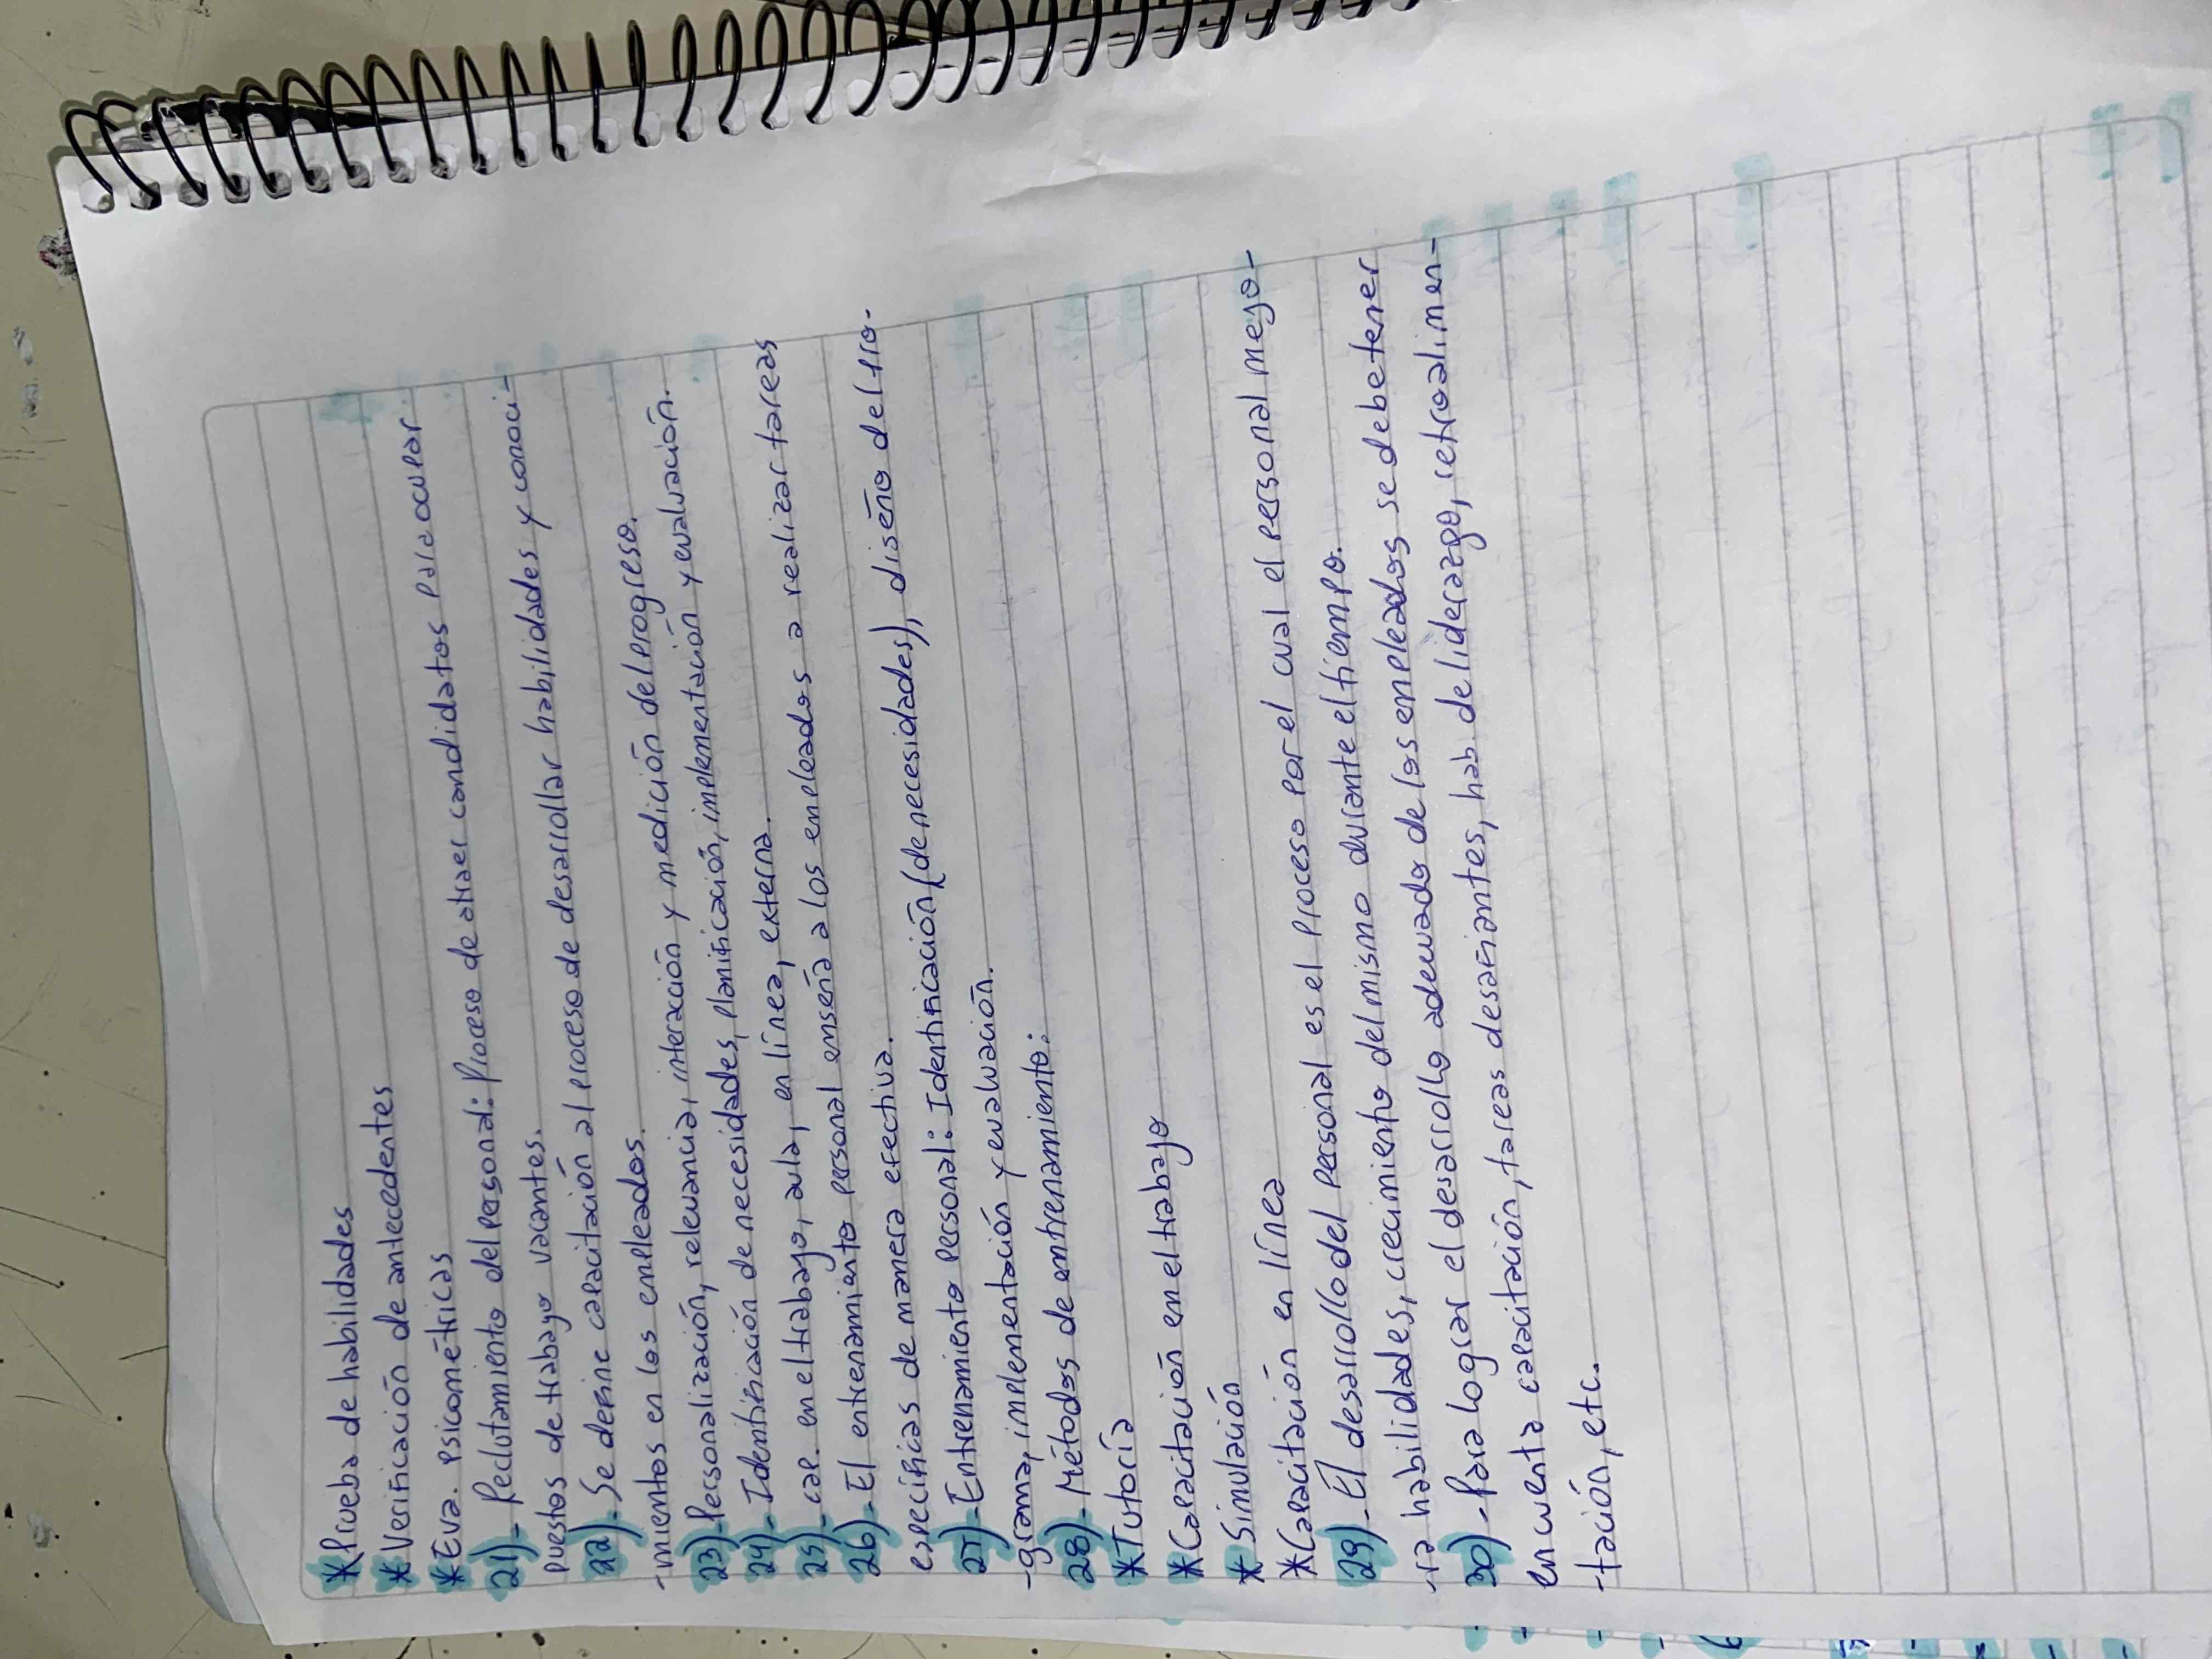 * Prueba de habilidades
* Verificación de antecedentes
* Eva. psicométricas
21)- Reclutamiento del personal: Proceso de atraer candidatos para ocupar
puestos de trabajo vacantes.
22)- Se define capacitación al proceso de desarrollar habilidades y conoci-
-mientos en los empleados.
23)- Personalización, relevancia, interacción y medición del progreso.
24)- Identificación de necesidades, planificación, implementación y evaluación.
25)- cap. en el trabajo, aula, en línea, externa.
26)- El entrenamiento personal enseña a los empleados a realizar tareas
específicas de manera efectiva.
27)- Entrenamiento personal: Identificación (de necesidades), diseño del pro-
-grama, implementación y evaluación.
28)- Métodos de entrenamiento:
* Tutoría
* Capacitación en el trabajo
* Simulación
* Capacitación en línea
29)- El desarrollo del personal es el proceso por el cual el personal mejo-
-ra habilidades, crecimiento del mismo durante el tiempo.
30)- Para lograr el desarrollo adecuado de los empleados se debe tener
en cuenta capacitación, tareas desafiantes, hab de liderazgo, retroalimen-
-tación, etc.